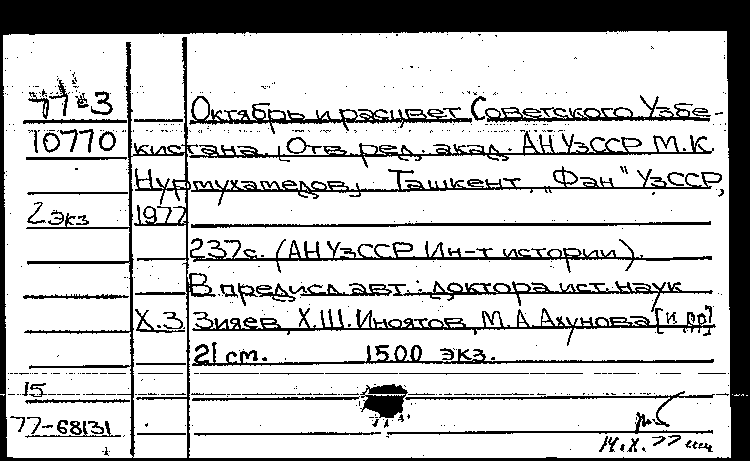 77-3
Октябрь и расцвет Советского Узбе-
10770 кистана. [Отв. ред. акад. АН УзССР М.К.
Нурмухамедов]. Ташкент, „Фан" УзССР,
2 экз 1977
237с. (АН УзССР. Ин-т истории).
В предисл. авт.: доктора ист. наук
Х.З Зияев, Х.Ш. Иноятов, М.А. Ахунова [и др]
21 см. 1500 экз.
15
77-68131
14.X.77